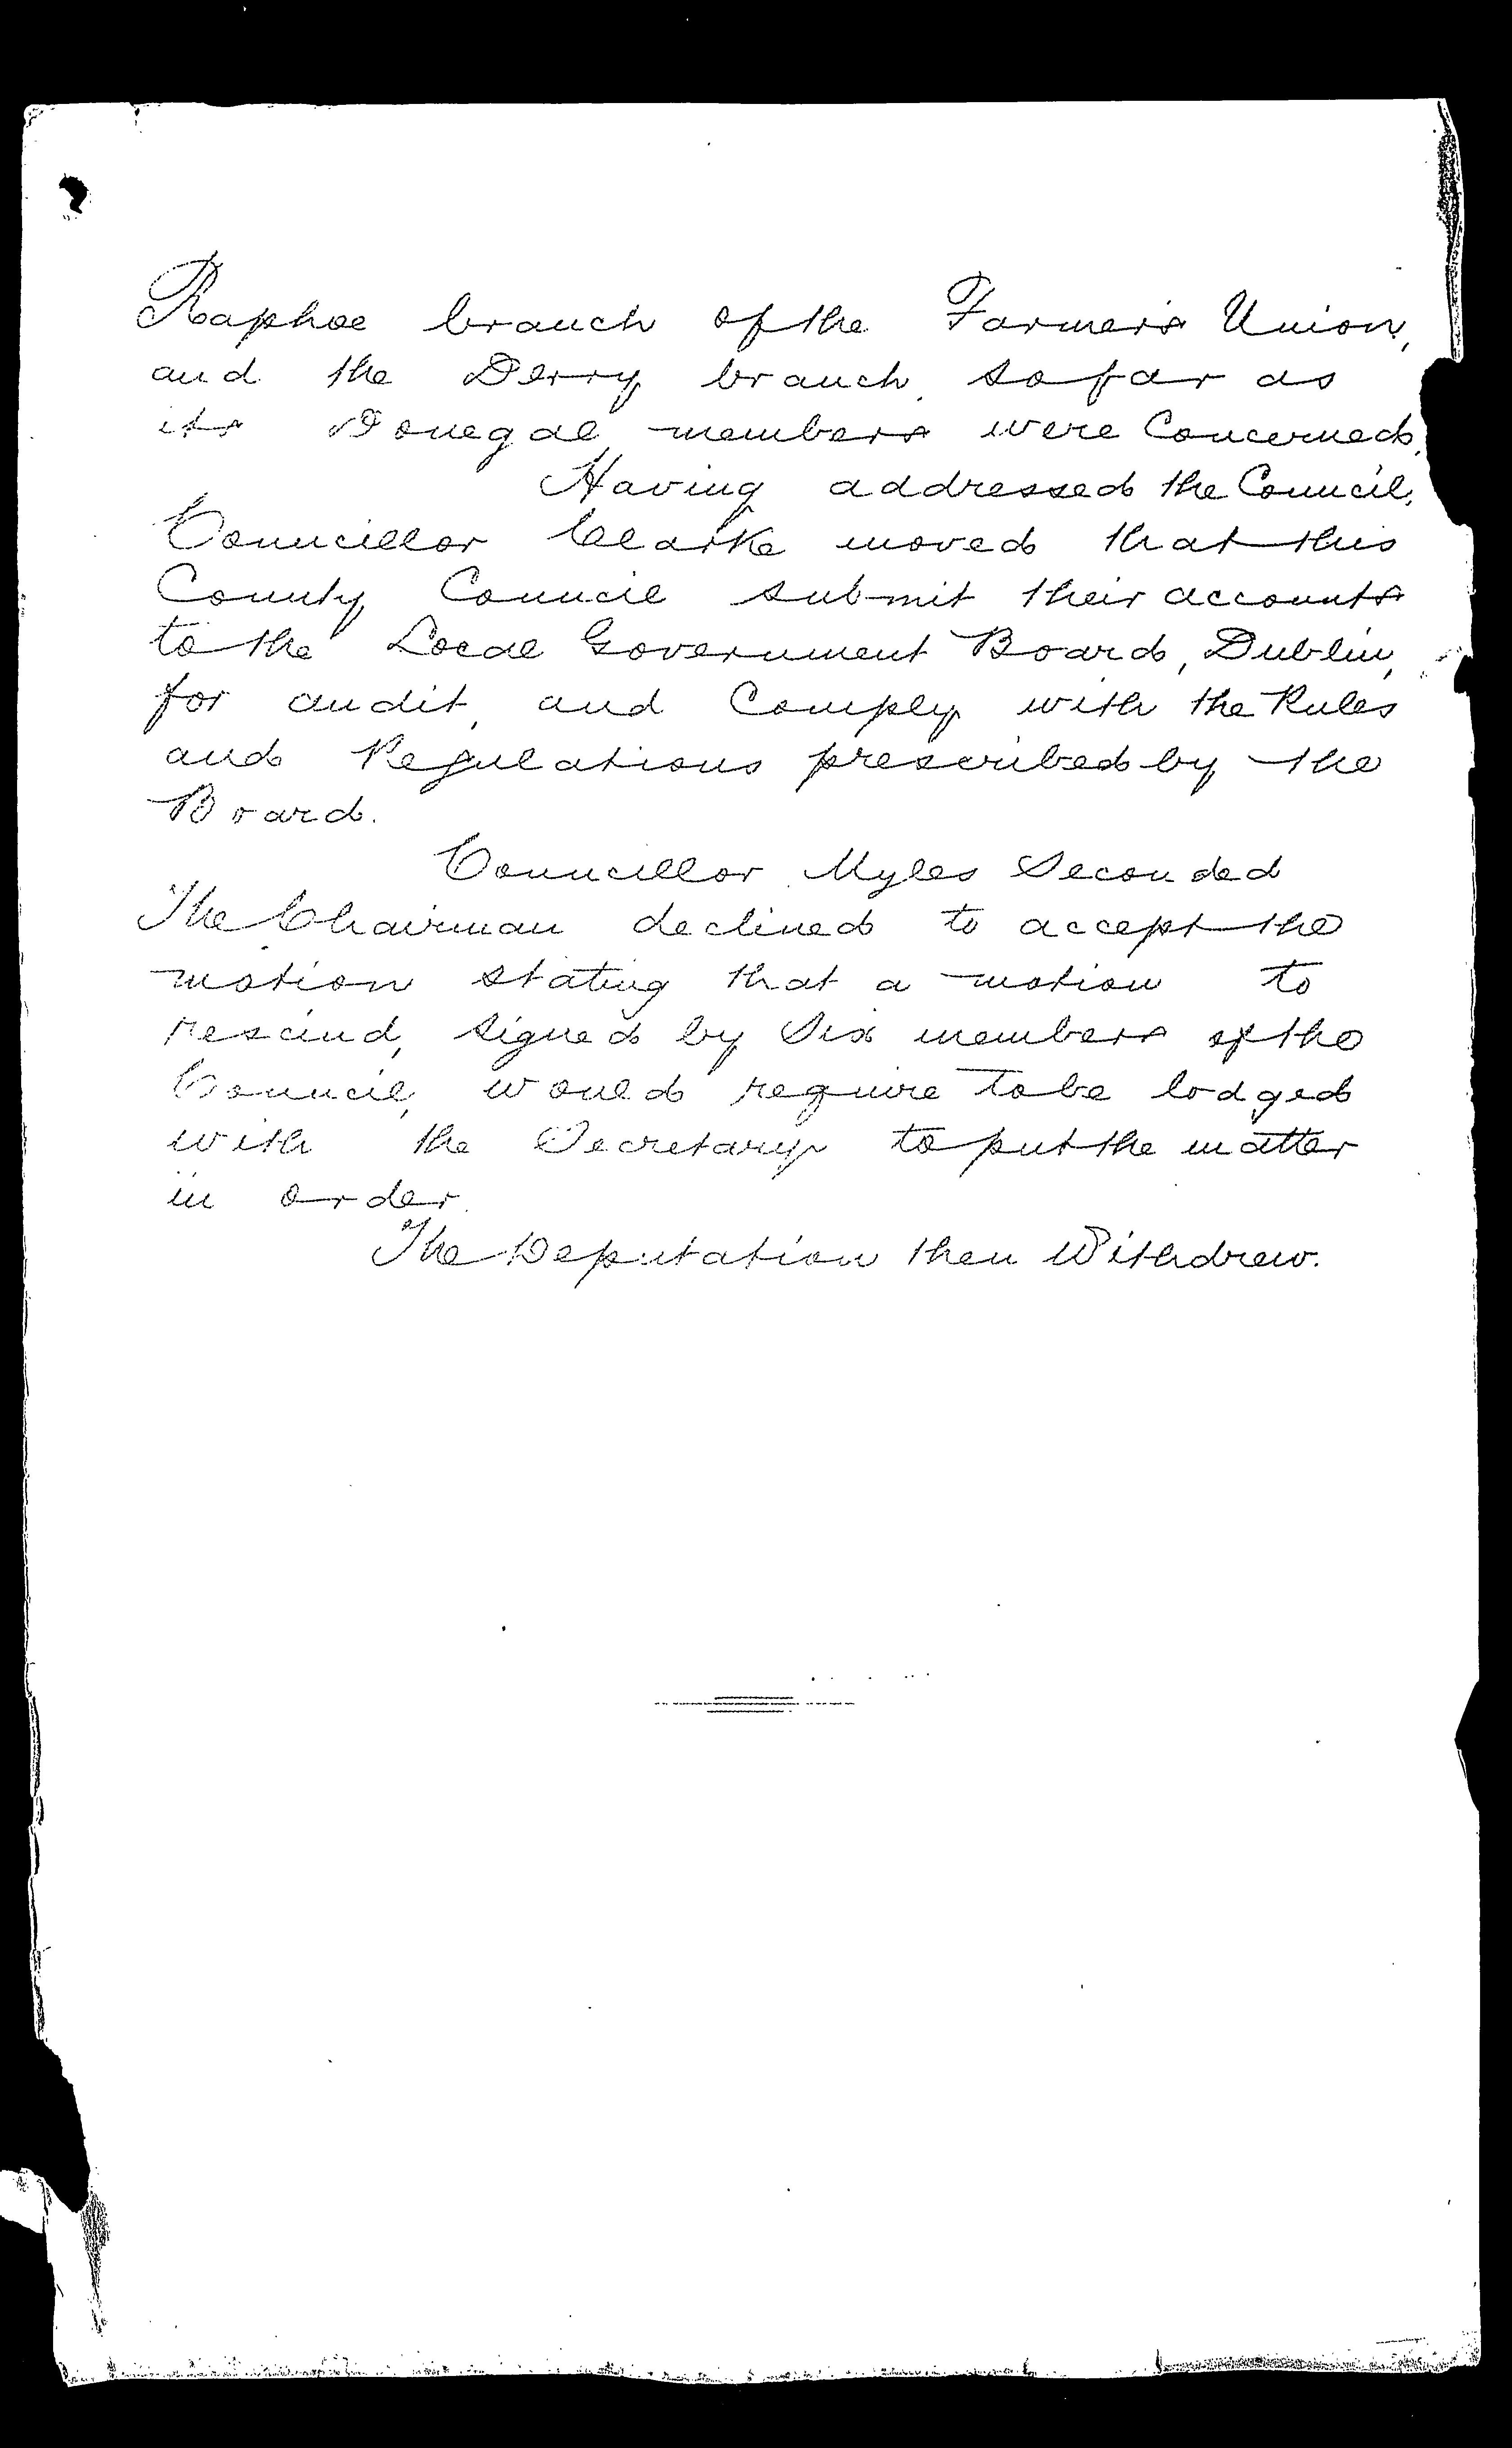 Raphoe branch of the Farmers Union,
and the Derry branch, so far as
its Donegal members were Concerned.
Having addressed the Council,
Councillor Clarke moved that this
County Council submit their accounts
to the Local Government Board, Dublin,
for audit, and Comply with the Rules
and Regulations prescribed by the
Board.
Councillor Myles Seconded
The Chairman declined to accept the
motion stating that a motion to
rescind, signed by Six members of the
Council, would require to be lodged
with the Secretary to put the matter
in order.
The Deputation then Withdrew.